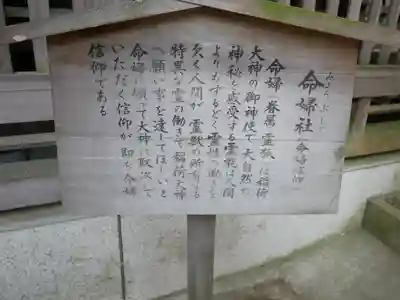 みょうぶしゃ
命婦社 命婦信仰
命婦(眷属 霊狐)は稲荷
大神の御神使で大自然の
神秘を感受する霊気は人間
よりもするどく霊性の働きで
なく人間が霊獣の所有する
特異な霊の働きで稲荷大神
へ願い事を達してほしいと
命婦に頼って大神に取次して
いただく信仰が即ち命婦
信仰である